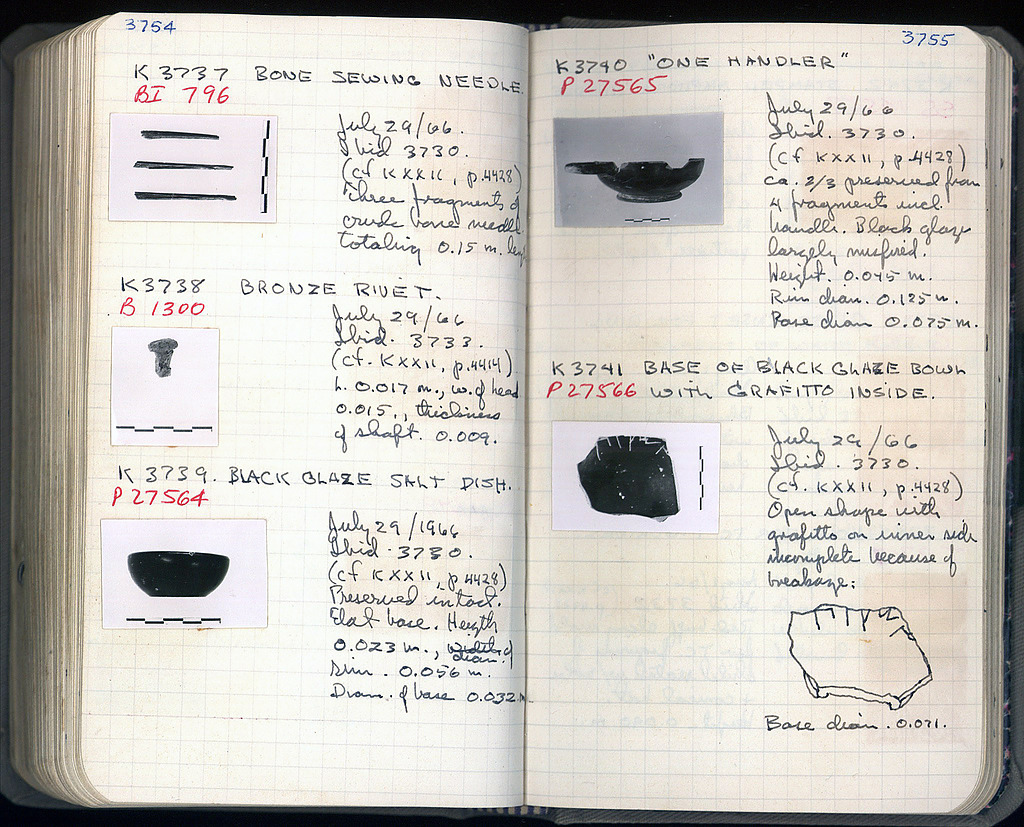 3754
K 3737 BONE SEWING NEEDLE.
BI 796
July 29/66.
Ibid 3730.
(cf KXXII, p.4428)
Three fragments of
crude bone needle
totaling 0.15 m. leng
K3738 BRONZE RIVET.
B 1300
July 29/66
Ibid. 3733.
(cf. KXXII, p.4414)
h. 0.017 m., w. of head
0.015., thickness
of shaft. 0.009.
K 3739. BLACK GLAZE SALT DISH.
P 27564
July 29/1966
Ibid. 3730.
(cf KXXII, p 4428)
Preserved intact.
Flat base. Heigth
0.023 m., width of
diam.
rim. 0.056 m.
Diam. of base 0.032 m
3755
K3740 "ONE HANDLER"
P 27565
July 29/66
Ibid. 3730.
(cf KXXII, p.4428)
ca. 2/3 preserved from
4 fragments incl.
handle. Black glaze
largely misfired.
Height. 0.045 m.
Rim diam. 0.125 m.
Base diam 0.075 m.
K3741 BASE OF BLACK GLAZE BOWL
P 27566 WITH GRAFITTO INSIDE.
July 29/66
Ibid. 3730.
(cf. KXXII, p.4428)
Open shape with
grafitto on inner side
incomplete because of
breakage:
Base diam. 0.071.